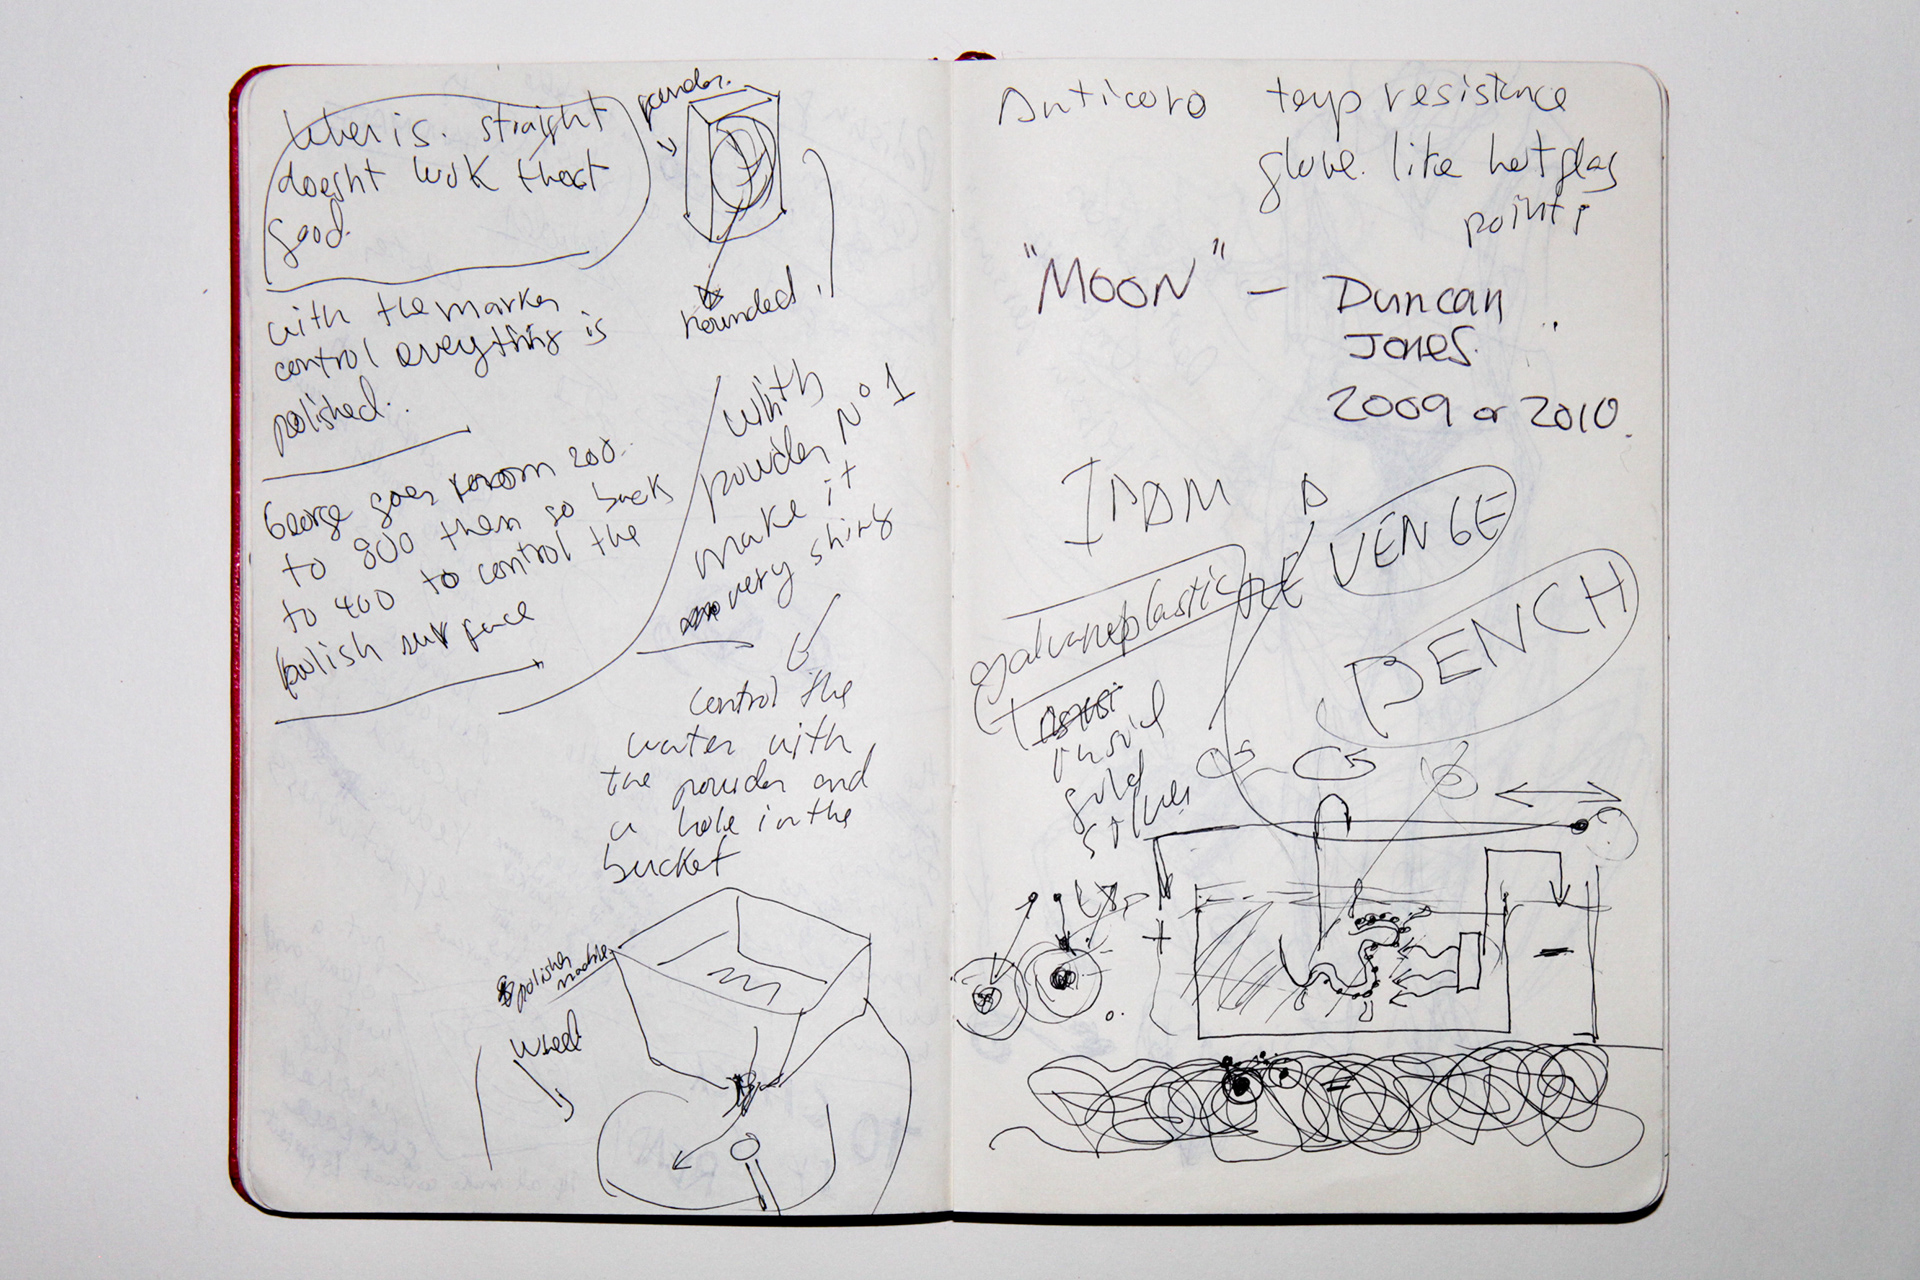 When is. straight
doesnt wok that
good.
powder.
rounded.
with the marker
control everything is
polished..
George goes from 200.
to 800 then go back
to 400 to control the
polish surface
with
powder Nº 1
make it
very shiny
control the
water with
the powder and
a hole in the
bucket
polisher
machine.
wheel
Anticoro temp resistance
glove. like hotplag
points
"MOON" - Duncan
Jones.
2009 or 2010.
REVENGE
BENCH
galvanoplastic
gold
silver
+
-
-